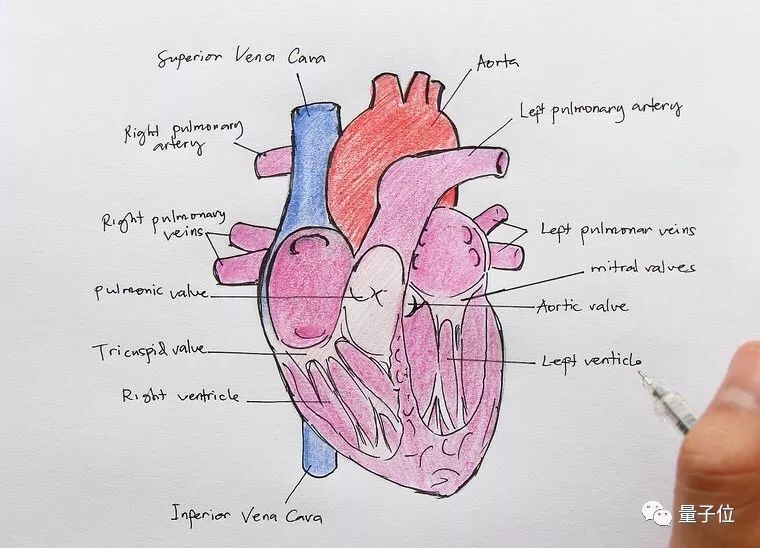 Superior Vena Cava
Aorta
Right pulmonary
artery
Left pulmonary artery
Right pulmonary
veins
Left pulmonar veins
mitral valves
pulmonic valve
Aortic valve
Tricuspid valve
Left venticle
Right ventricle
Inferior Vena Cava
量子位